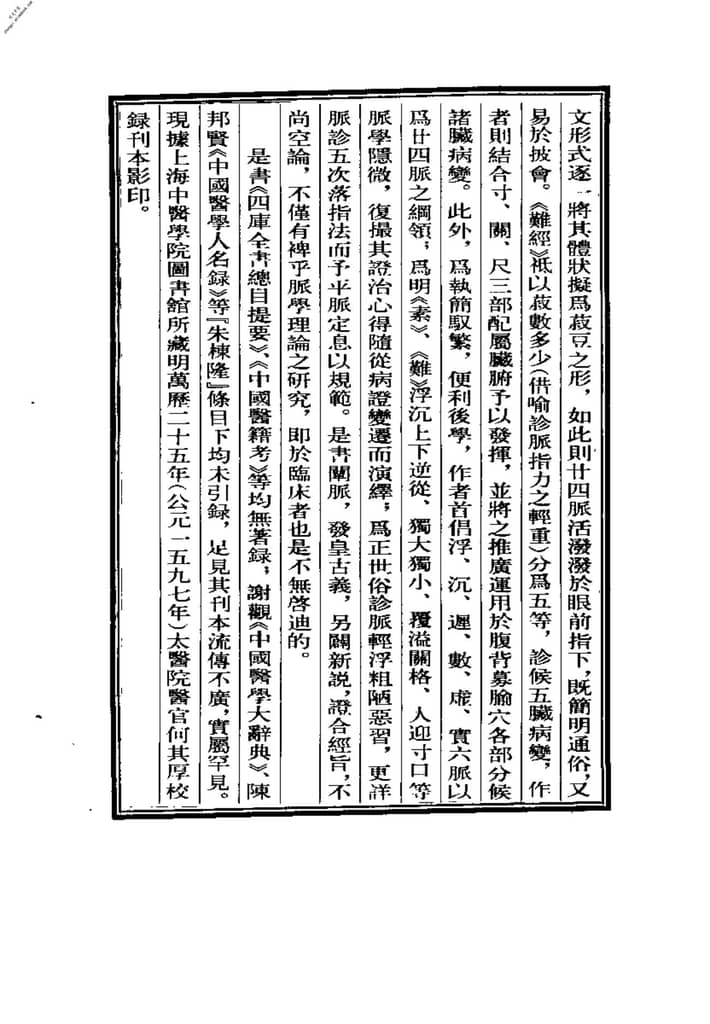 文形式逐一將其體狀擬爲菽豆之形，如此則廿四脈活潑潑於眼前指下，既簡明通俗，又
易於披會。《難經》祗以菽數多少（借喻診脈指力之輕重）分爲五等，診候五臟病變，作
者則結合寸、關、尺三部配屬臟腑予以發揮，並將之推廣運用於腹背募腧穴各部分候
諸臟病變。此外，爲執簡馭繁，便利後學，作者首倡浮、沉、遲、數、虛、實六脈以
爲廿四脈之綱領；爲明《素》、《難》浮沉上下逆從、獨大獨小、覆溢關格、人迎寸口等
脈學隱微，復撮其證治心得隨從病證變遷而演繹；爲正世俗診脈輕浮粗陋惡習，更詳
脈診五次落指法而予平脈定息以規範。是書闡脈，發皇古義，另闢新説，證合經旨，不
尚空論，不僅有裨乎脈學理論之研究，即於臨床者也是不無啓迪的。
是書《四庫全書總目提要》、《中國醫籍考》等均無著録；謝觀《中國醫學大辭典》、陳
邦賢《中國醫學人名録》等『朱棟隆』條目下均未引録，足見其刊本流傳不廣，實屬罕見。
現據上海中醫學院圖書館所藏明萬歷二十五年（公元一五九七年）太醫院醫官何其厚校
録刊本影印。